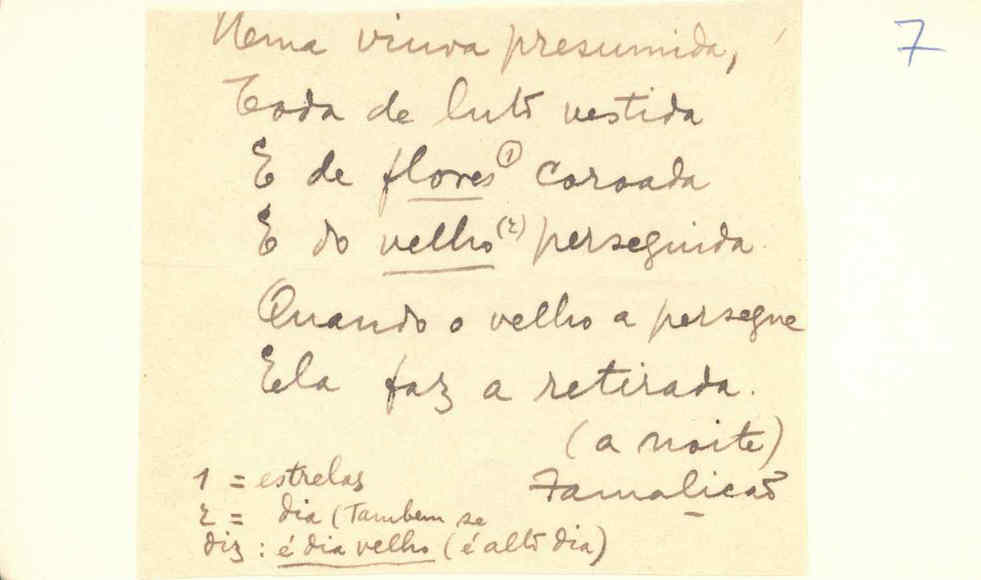 7
Uma viuva presumida,
Toda de luto vestida
E de flores (1) coroada
E do velho (2) perseguida
Quando o velho a persegue
Ela faz a retirada.
(a noite)
Famalicão
1 = estrelas
2 = dia (Tambem se
diz: é dia velho (é alto dia)